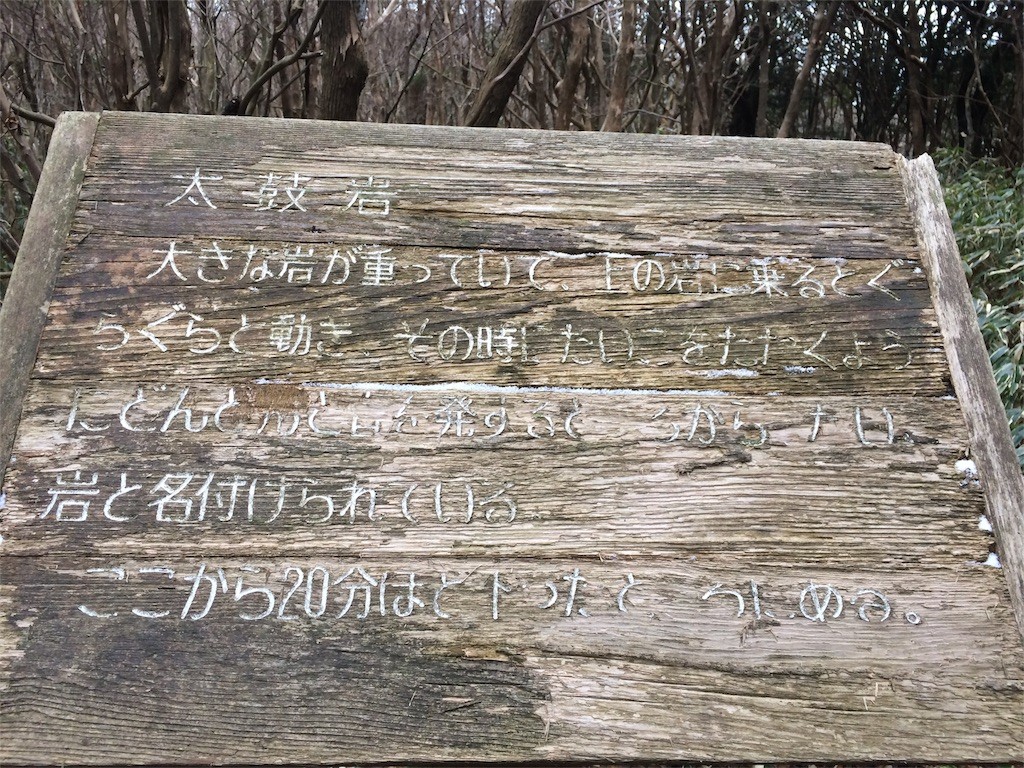 太鼓岩
大きな岩が重っていて、上の岩に乗るとぐ
らぐらと動き、その時にたいこをたたくよう
にどんどんと音を発するところから、たいこ
岩と名付けられている。
ここから20分ほど下ったところにある。